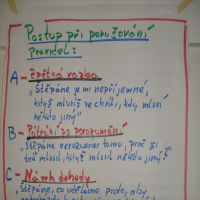 Postup při porušování
pravidel:
A - Zpětná vazba
„Štěpáne je mi nepříjemné,
když mluvíš ve chvíli, kdy mluví
někdo jiný“
B - Pátrání do porozumění
„Štěpáne nerozumím tomu, proč jsi
mluvil, když mluvil někdo jiný?“
C - Návrh dohody
Štěpáne, co uděláme proto, aby